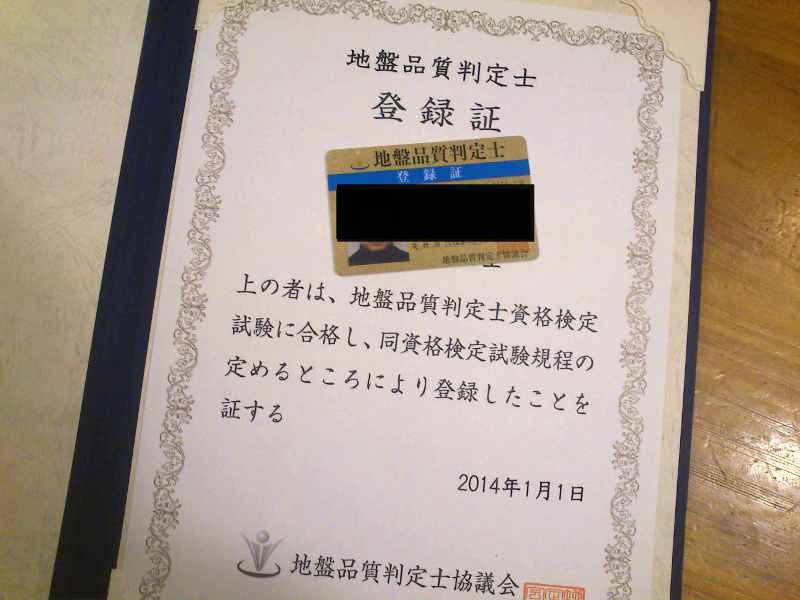 地盤品質判定士
登録証
地盤品質判定士
登録証
地盤品質判定士協議会
上の者は、地盤品質判定士資格検定
試験に合格し、同資格検定試験規程の
定めるところにより登録したことを
証する
2014年1月1日
地盤品質判定士協議会